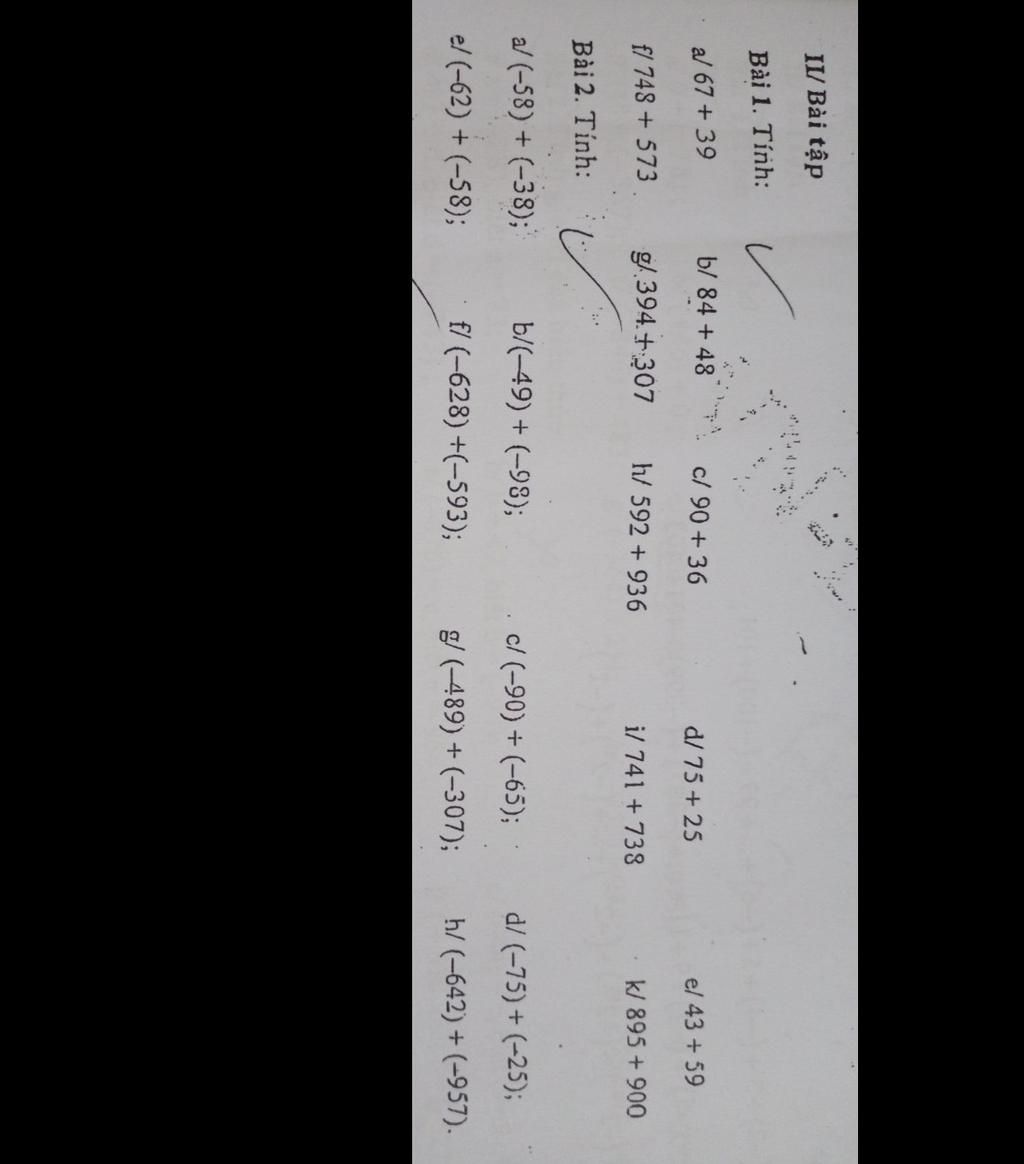 II/ Bài tập
Bài 1. Tính:
a/ 67 + 39 b/ 84 + 48 c/ 90 + 36 d/ 75 + 25 e/ 43 + 59
f/ 748 + 573 g/ 394 + 307 h/ 592 + 936 i/ 741 + 738 k/ 895 + 900
Bài 2. Tính:
a/ (−58) + (−38); b/(−49) + (−98); c/ (−90) + (−65); d/ (−75) + (−25);
e/ (−62) + (−58); f/ (−628) +(−593); g/ (−489) + (−307); h/ (−642) + (−957).